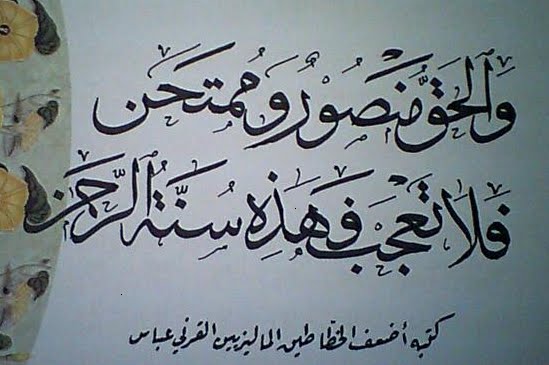 وَٱلحَقُّ مَنْصُورٌ وَمُمتَحَن
فَلَا تَعْجَب فَهَذِهِ سُنَّةُ ٱلرَّحمن
كتبه أضعف الخطاطين الماليزيين القرني عباس